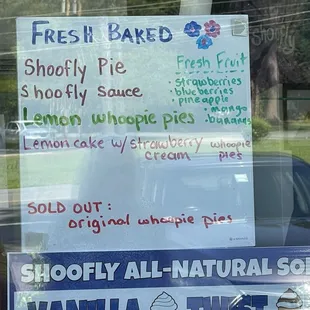 FRESH BAKED
Shoofly Pie
Shoofly Sauce
Lemon whoopie pies
Lemon cake w/ strawberry whoopie
cream pies
Fresh Fruit
• strawberries
• blueberries
• pineapple
• mango
• bananas
SOLD OUT:
original whoopie pies
SHOOFLY ALL-NATURAL SO
VANILLA TWIST